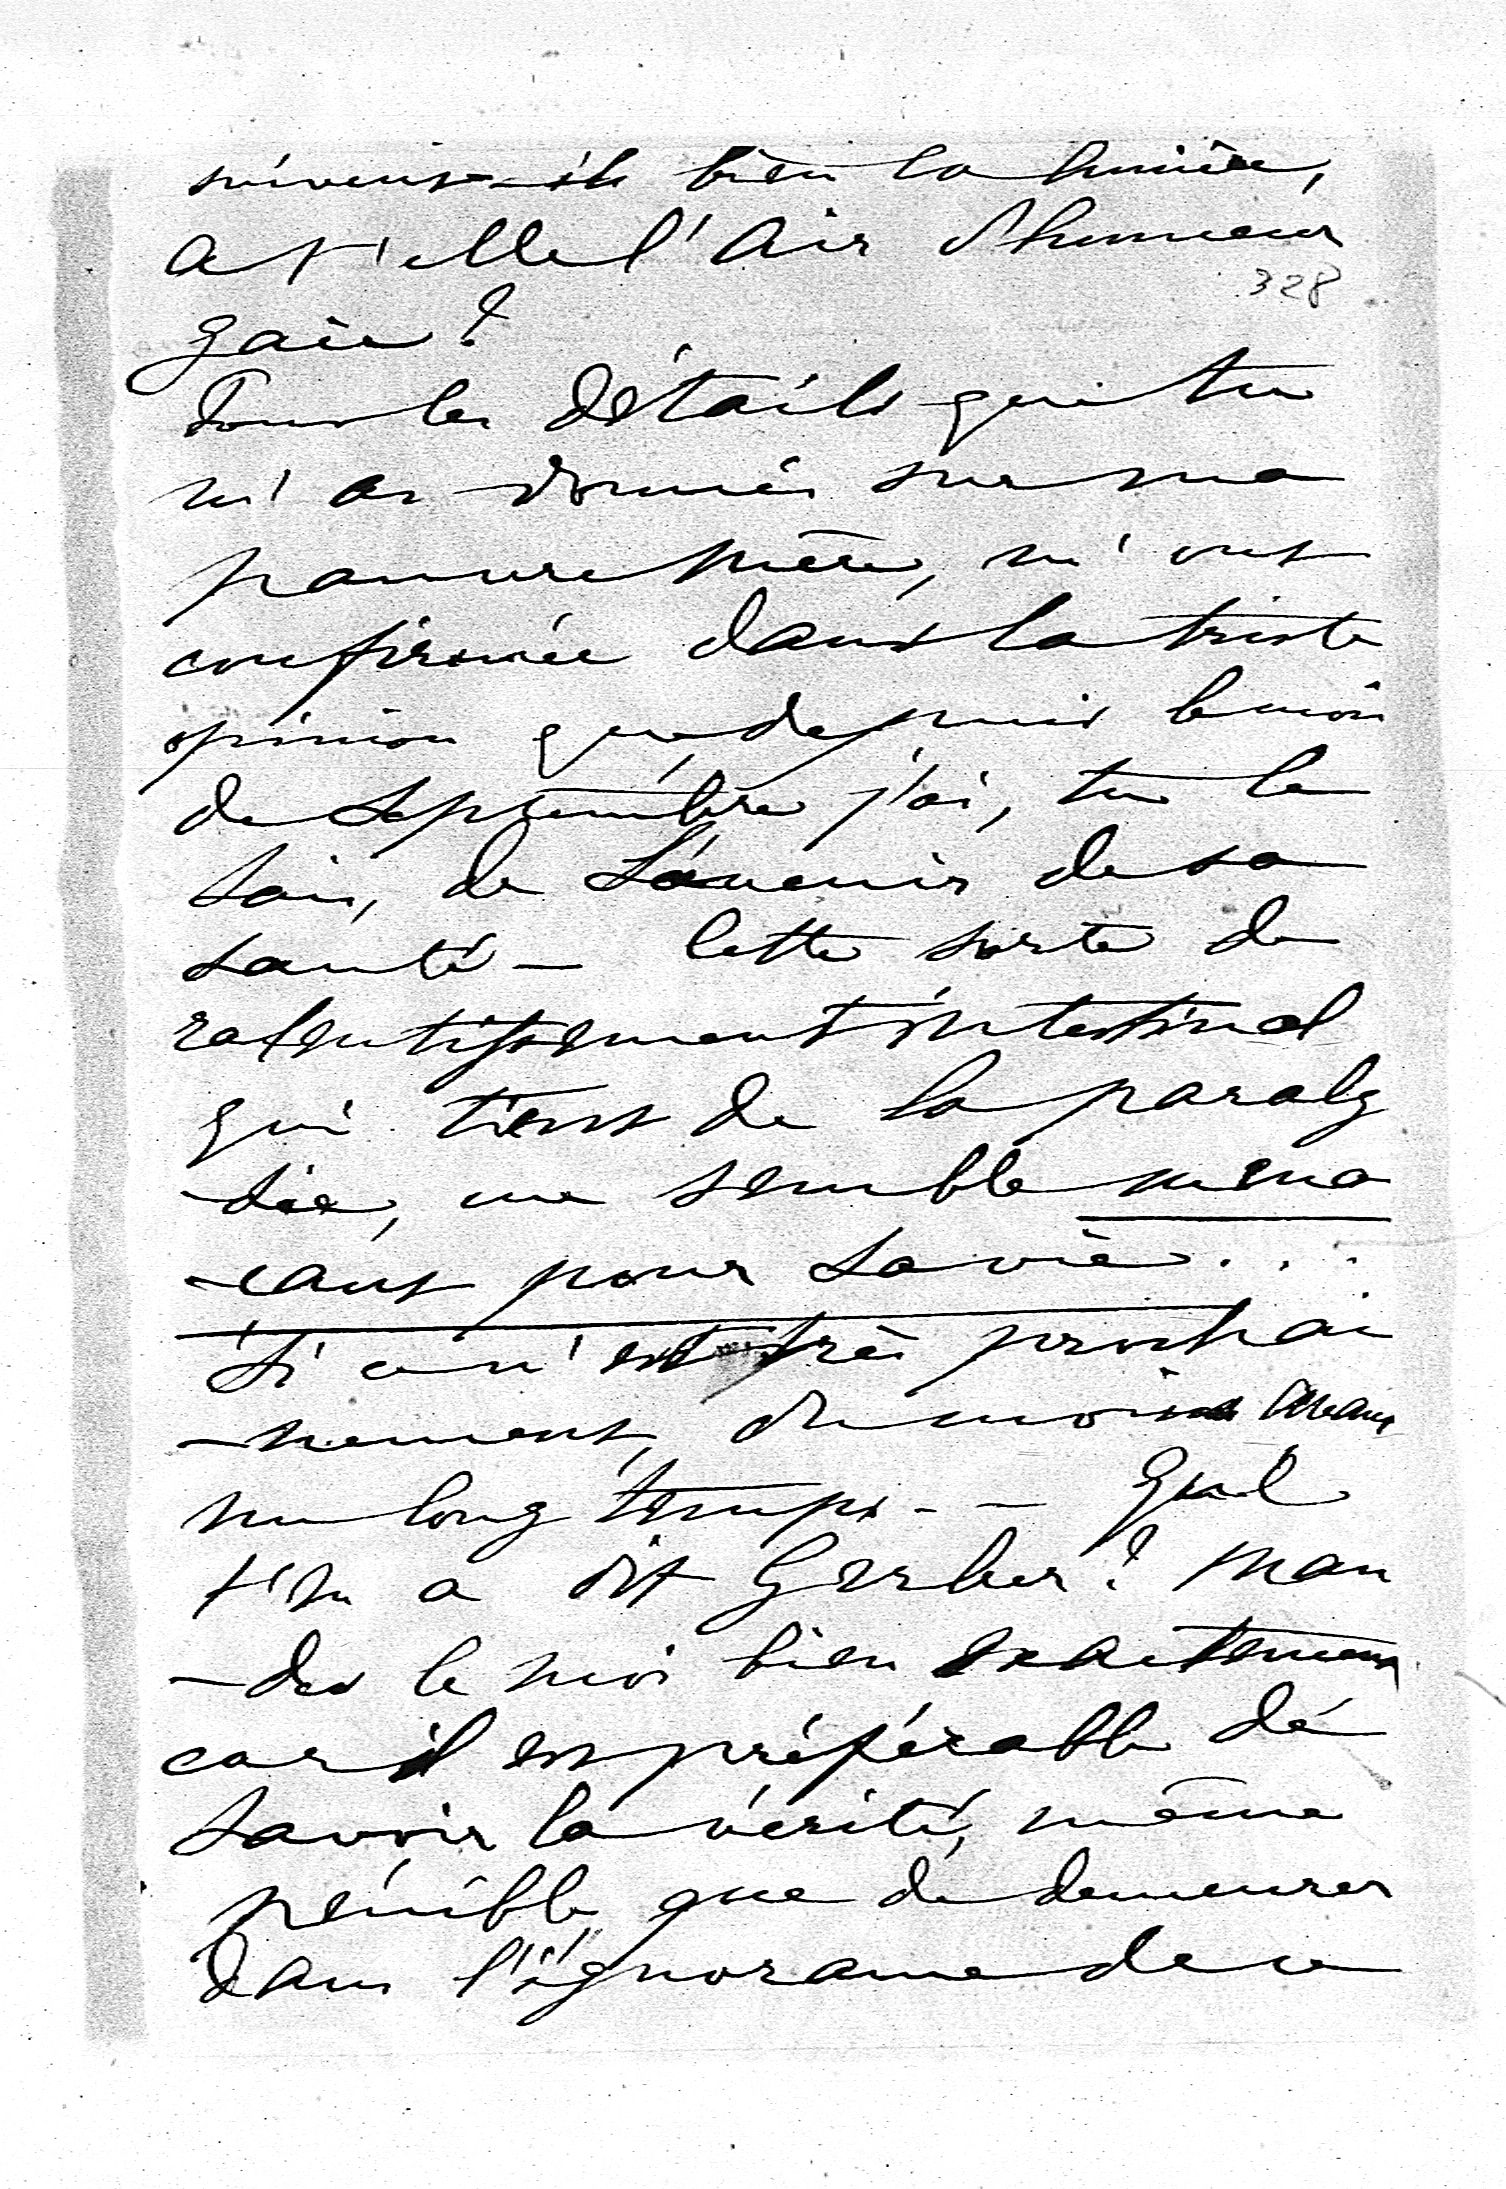 suivent-ils bien la lumière,
a t'elle l'air d'humeur
328
gaie?
Tous les détails que tu
m'as donnés sur ma
pauvre mère, m'ont
confirmée dans la triste
opinion que depuis le mois
de Septembre j'ai, tu le
sais, de l'avenir de sa
santé - Cette sorte de
ralentissement intestinal
qui tient de la paraly
-sie, me semble mena
-cant pour sa vie...
si ce n'est très prochai
-nement, du moins avant
un long temps - - Quel
t'en a dit Gerber? Man
-des le moi bien exactement
car il est préférable de
savoir la vérité, même
pénible que de demeurer
dans l'ignorance de ce